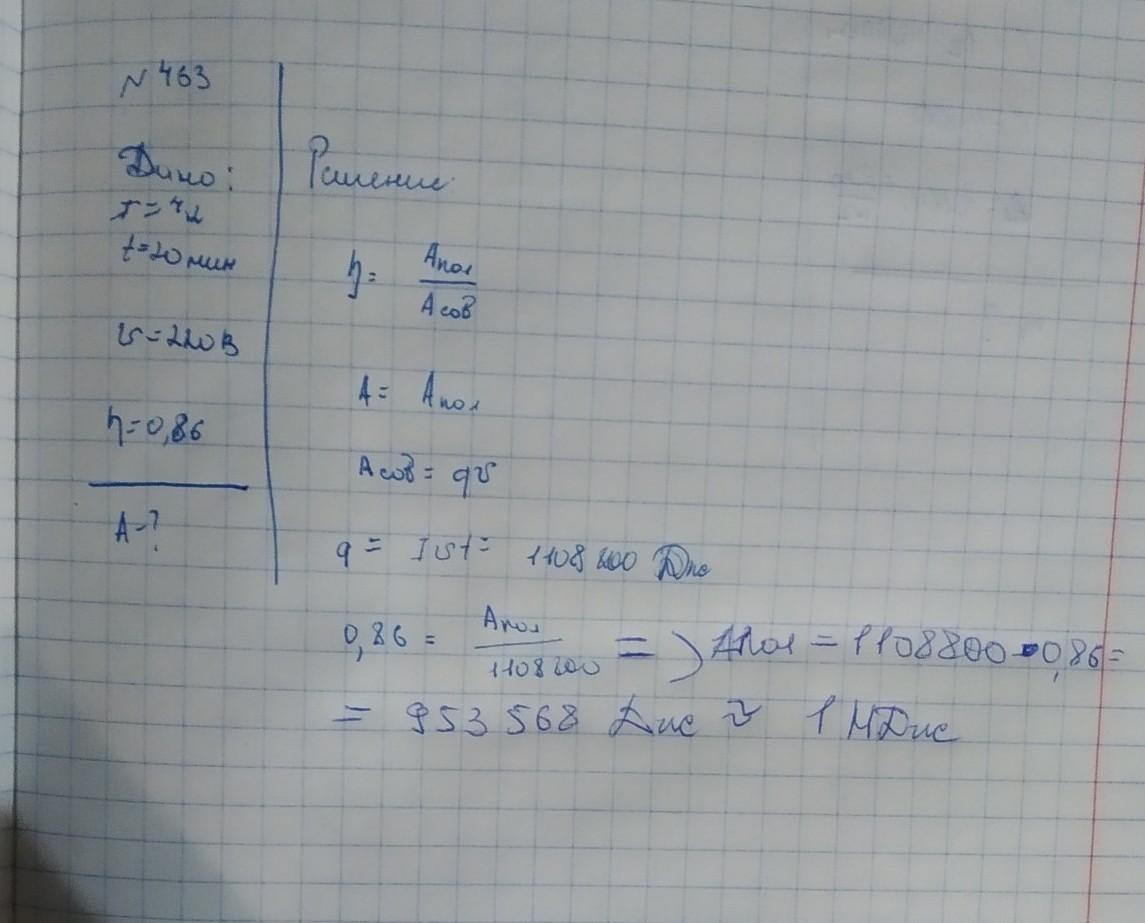 № 463
Дано:
t = 20 мин
U = 220 В
η = 0,86
A - ?
Решение:
η = Aпол / Aсов
A = Aпол
Aсов = qU
q = IUt = 1108800 Дж
0,86 = Aпол / 1108800 => Апол = 1108800 · 0,86 =
= 953568 Дж ≈ 1 МДж